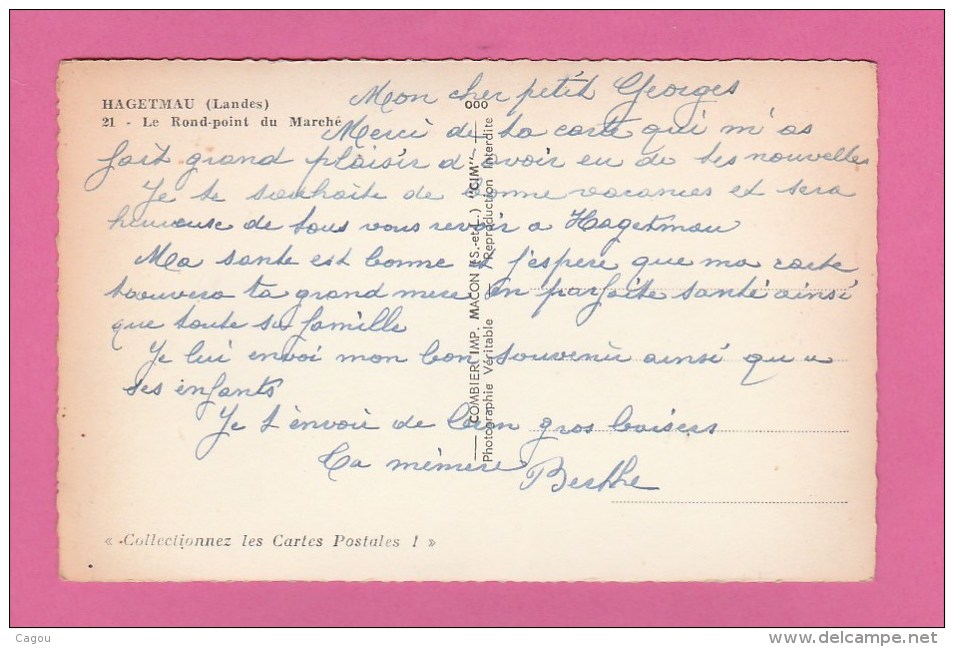 HAGETMAU (Landes)
21 - Le Rond-point du Marché
Mon cher petit Georges
Merci de ta carte qui m'as
fait grand plaisir d'avoir eu de tes nouvelles
Je te souhaite de bonne vacances et sera
heureuse de tous vous revoir a Hagetmau
Ma sante est bonne et j'espere que ma carte
trouvera ta grand mere en parfaite santé ainsi
que toute sa famille
Je lui envoi mon bon souvenir ainsi qu'a
ses enfants
Je t'envoie de bien gros baisers
Ta mémere Berthe
ooo
COMBIER IMP. MACON (S.-et-L.) "CIM"
Photographie Véritable - Reproduction Interdite
« Collectionnez les Cartes Postales ! »
Cagou
www.delcampe.net